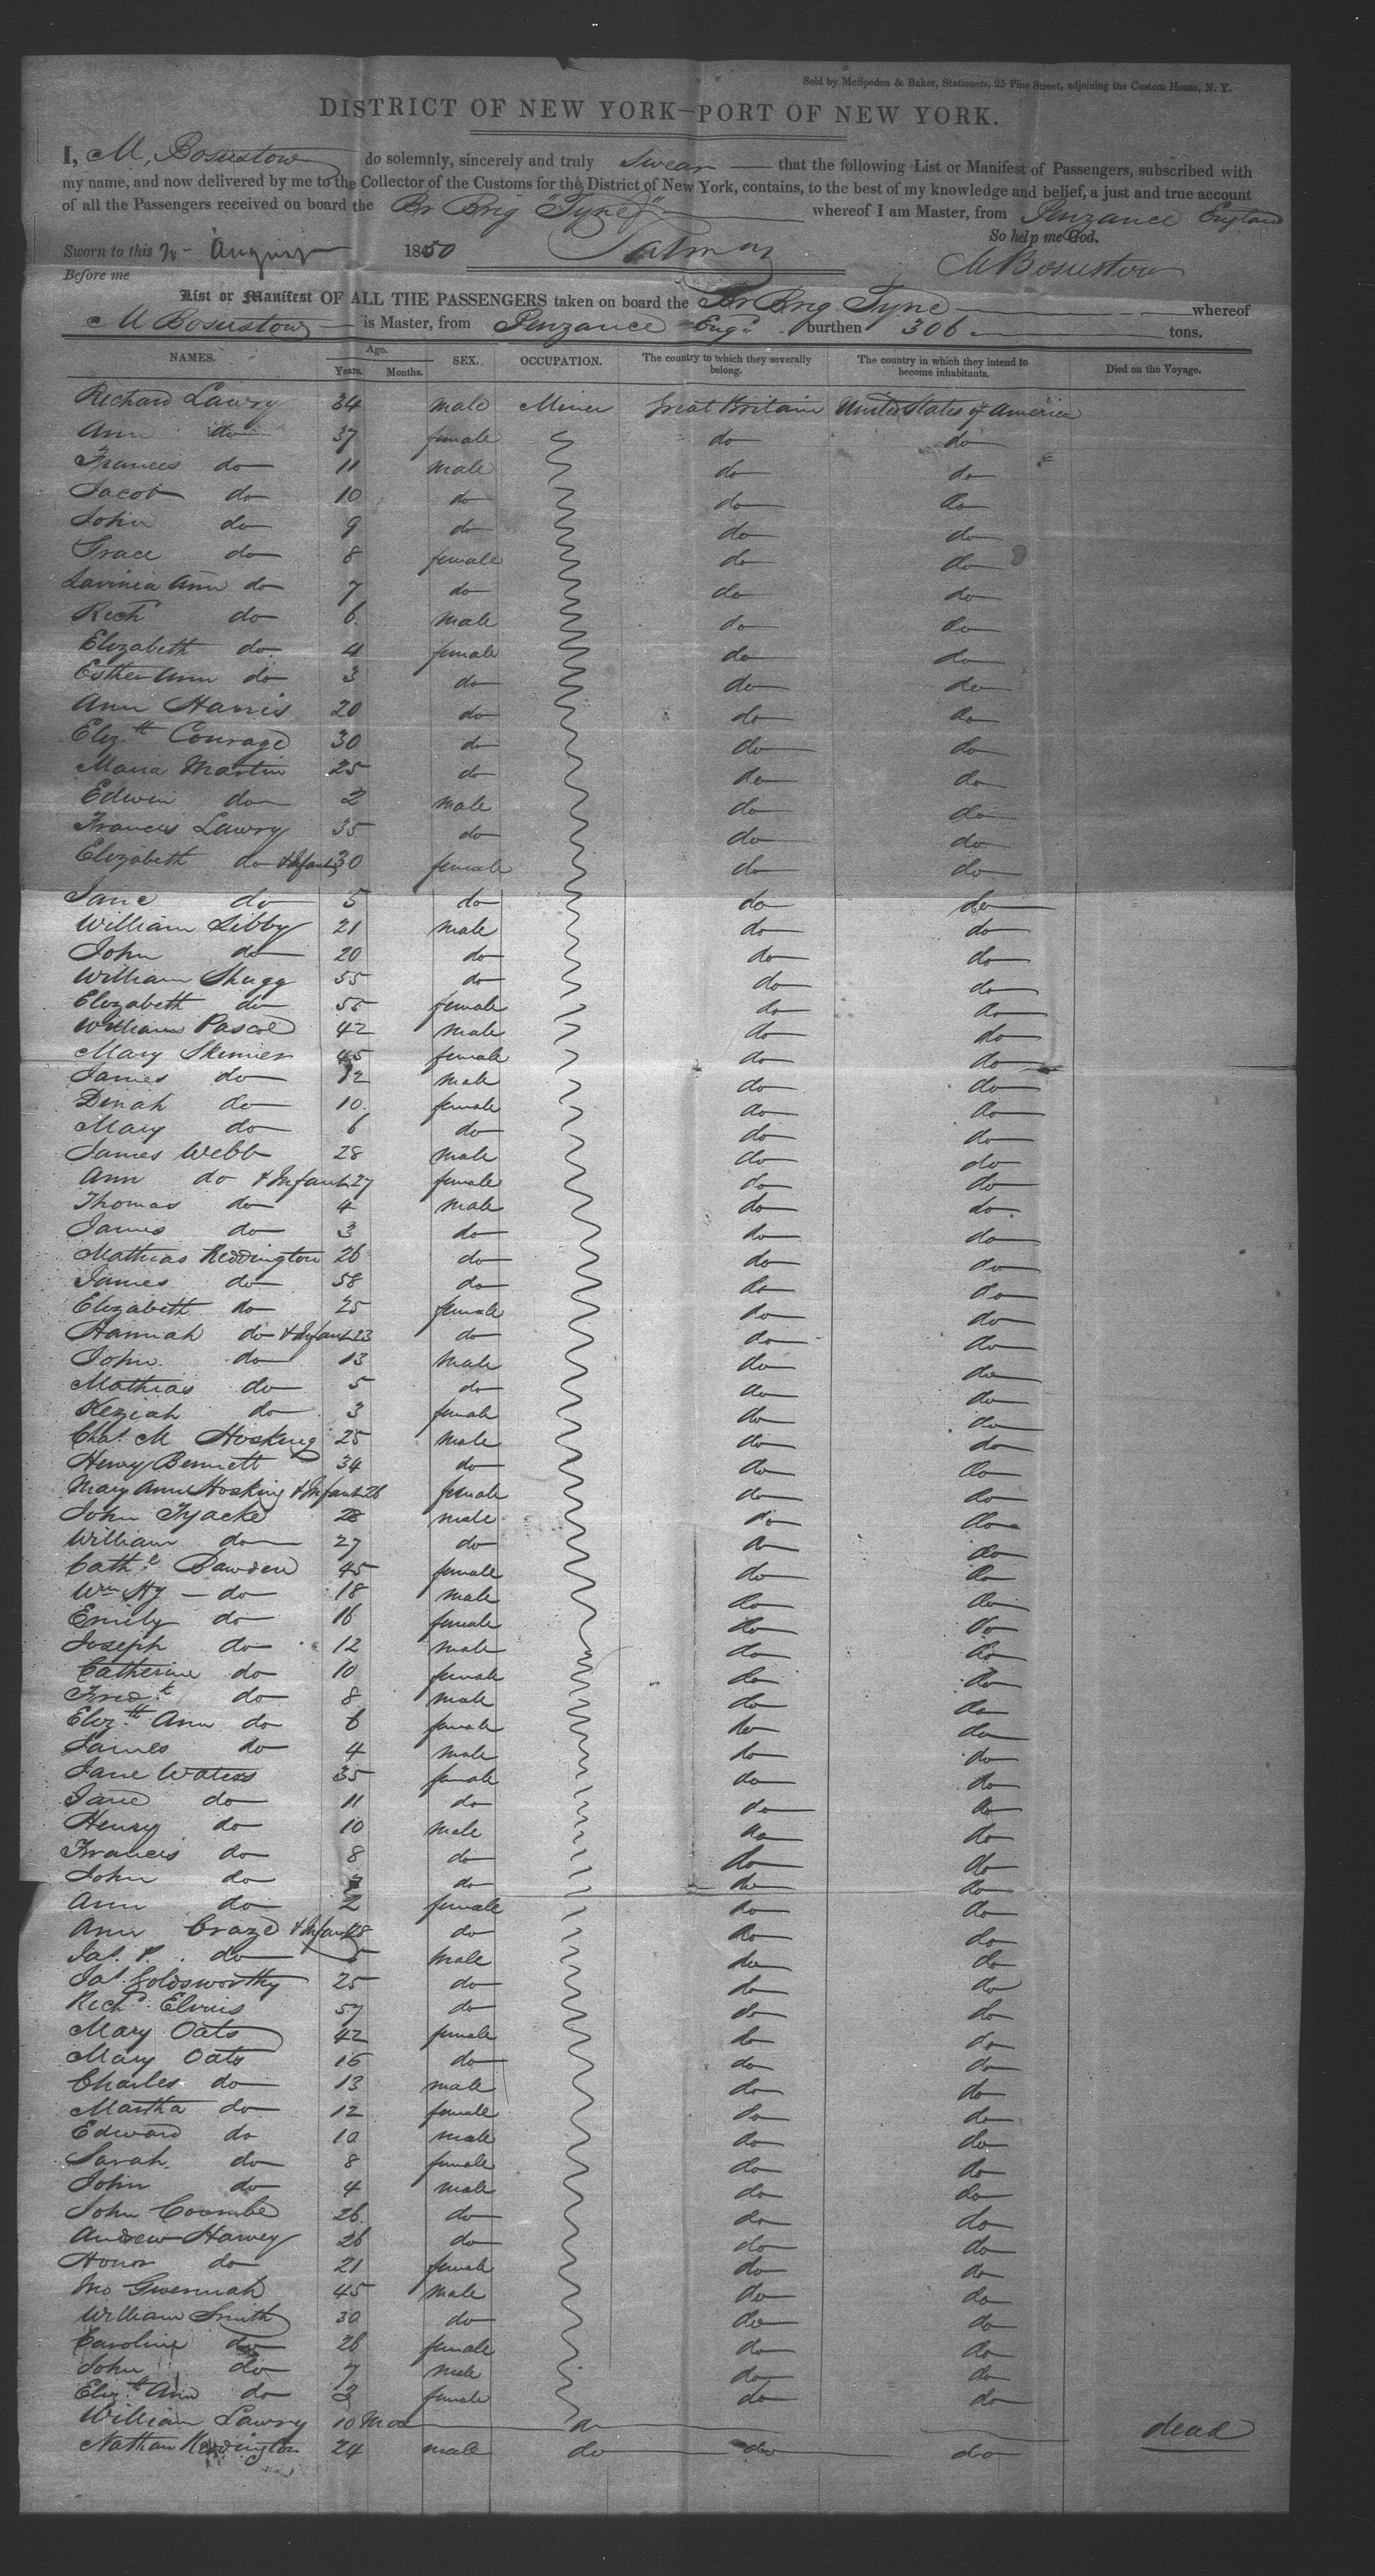 Sold by McSpedon & Baker, Stationers, 25 Pine Street, adjoining the Custom House, N. Y.
DISTRICT OF NEW YORK—PORT OF NEW YORK.
I, M, Bosustow do solemnly, sincerely and truly Swear that the following List or Manifest of Passengers, subscribed with
my name, and now delivered by me to the Collector of the Customs for the District of New York, contains, to the best of my knowledge and belief, a just and true account
of all the Passengers received on board the Br Brig "Tyne" whereof I am Master, from Penzance England
So help me God.
Sworn to this August 1850 M Bosustow
Before me
List or Manifest OF ALL THE PASSENGERS taken on board the Br Brig Tyne whereof
M Bosustow is Master, from Penzance Engd. burthen 306 tons.
NAMES. Age. Years. Months. SEX. OCCUPATION. The country to which they severally belong. The country in which they intend to become inhabitants. Died on the Voyage.
Richard Lawry 34 male Miner Great Britain United States of America
Ann do 37 female do do
Francis do 11 male do do
Jacob do 10 do do do
John do 9 do do do
Grace do 8 female do do
Lavinia Ann do 7 do do do
Rich do 6 male do do
Elizabeth do 4 female do do
Esther Ann do 3 do do do
Ann Harris 20 do do do
Elizth Courage 30 do do do
Maria Martin 25 do do do
Edwin do 2 male do do
Francis Lawry 35 do do do
Elizabeth do & Infant 30 female do do
Jane do 5 do do do
William Libby 21 male do do
John do 20 do do do
William Shugg 55 do do do
Elizabeth do 55 female do do
William Pascoe 42 male do do
Mary Skinner 45 female do do
James do 12 male do do
Dinah do 10 female do do
Mary do 6 do do do
James Webb 28 male do do
Ann do & Infant 27 female do do
Thomas do 4 male do do
James do 3 do do do
Mathias Reddington 26 do do do
James do 58 do do do
Elizabeth do 25 female do do
Hannah do & Infant 23 do do do
John do 13 male do do
Mathias do 5 do do do
Keziah do 3 female do do
Chas. M Hosking 25 male do do
Henry Bennett 34 do do do
Mary Ann Hosking & Infant 26 female do do
John Tyacke 28 male do do
William do 27 do do do
Cathe Dawden 45 female do do
Wm Hy do 18 male do do
Emily do 16 female do do
Joseph do 12 male do do
Catherine do 10 female do do
Fredk do 8 male do do
Elizth Ann do 6 female do do
James do 4 male do do
Jane Waters 35 female do do
Jane do 11 do do do
Henry do 10 male do do
Francis do 8 do do do
John do do do do
Ann do 2 female do do
Ann Craze & Infant 28 do do do
Jas. P. do 5 male do do
Jas. Goldsworthy 25 do do do
Richd. Elvins 57 do do do
Mary Oats 42 female do do
Mary Oats 15 do do do
Charles do 13 male do do
Martha do 12 female do do
Edward do 10 male do do
Sarah do 8 female do do
John do 4 male do do
John Coombe 26 do do do
Andrew Harvey 26 do do do
Honor do 21 female do do
Jno Gwennah 45 male do do
William Smith 30 do do do
Caroline do 26 female do do
John do 7 male do do
Elizth Ann do 3 female do do
William Lawry 10 Mos do dead
Nathan Reddington 24 male do do do